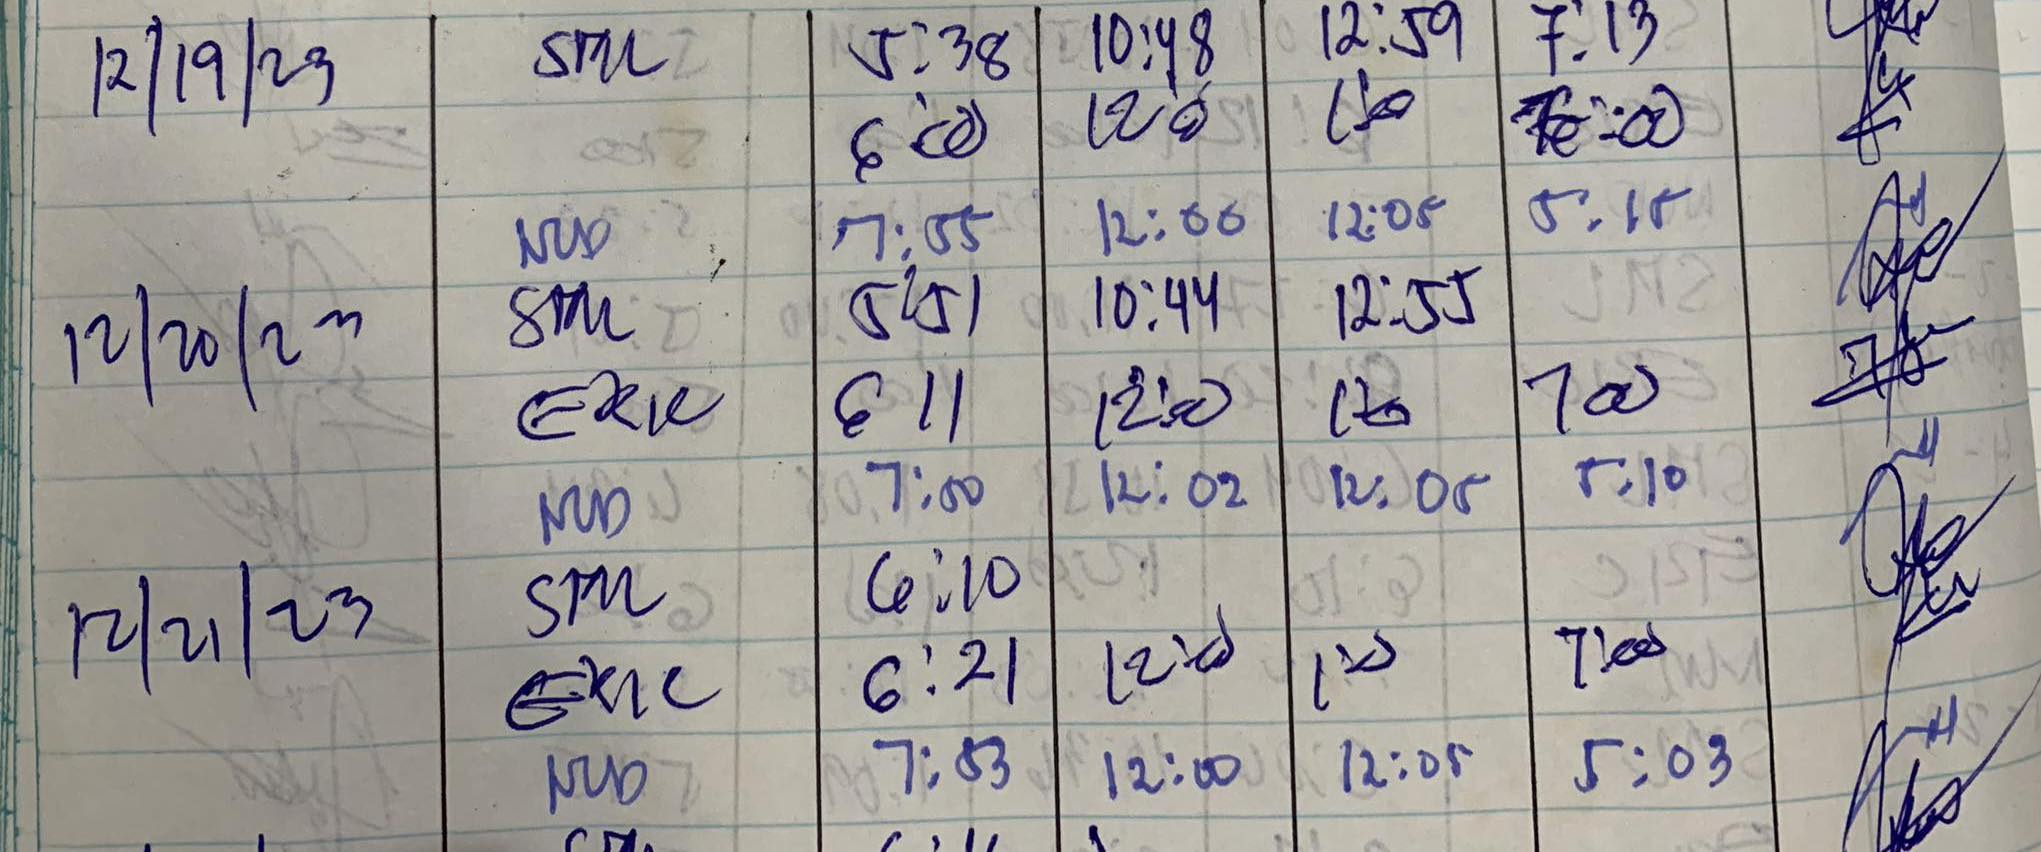 12/19/23 SML 5:38 10:48 12:59 7:13
6:00 12:0 1:00 6:00
NUD 7:55 12:00 12:05 5:15
12/20/23 SML 5:51 10:44 12:55
ERIC 6 11 12:00 1:00 7 00
NUD 7:50 12:02 12:05 5:10
12/21/23 SML 6:10
ERIC 6:21 12:00 1:00 7:00
NUD 7:53 12:00 12:05 5:03